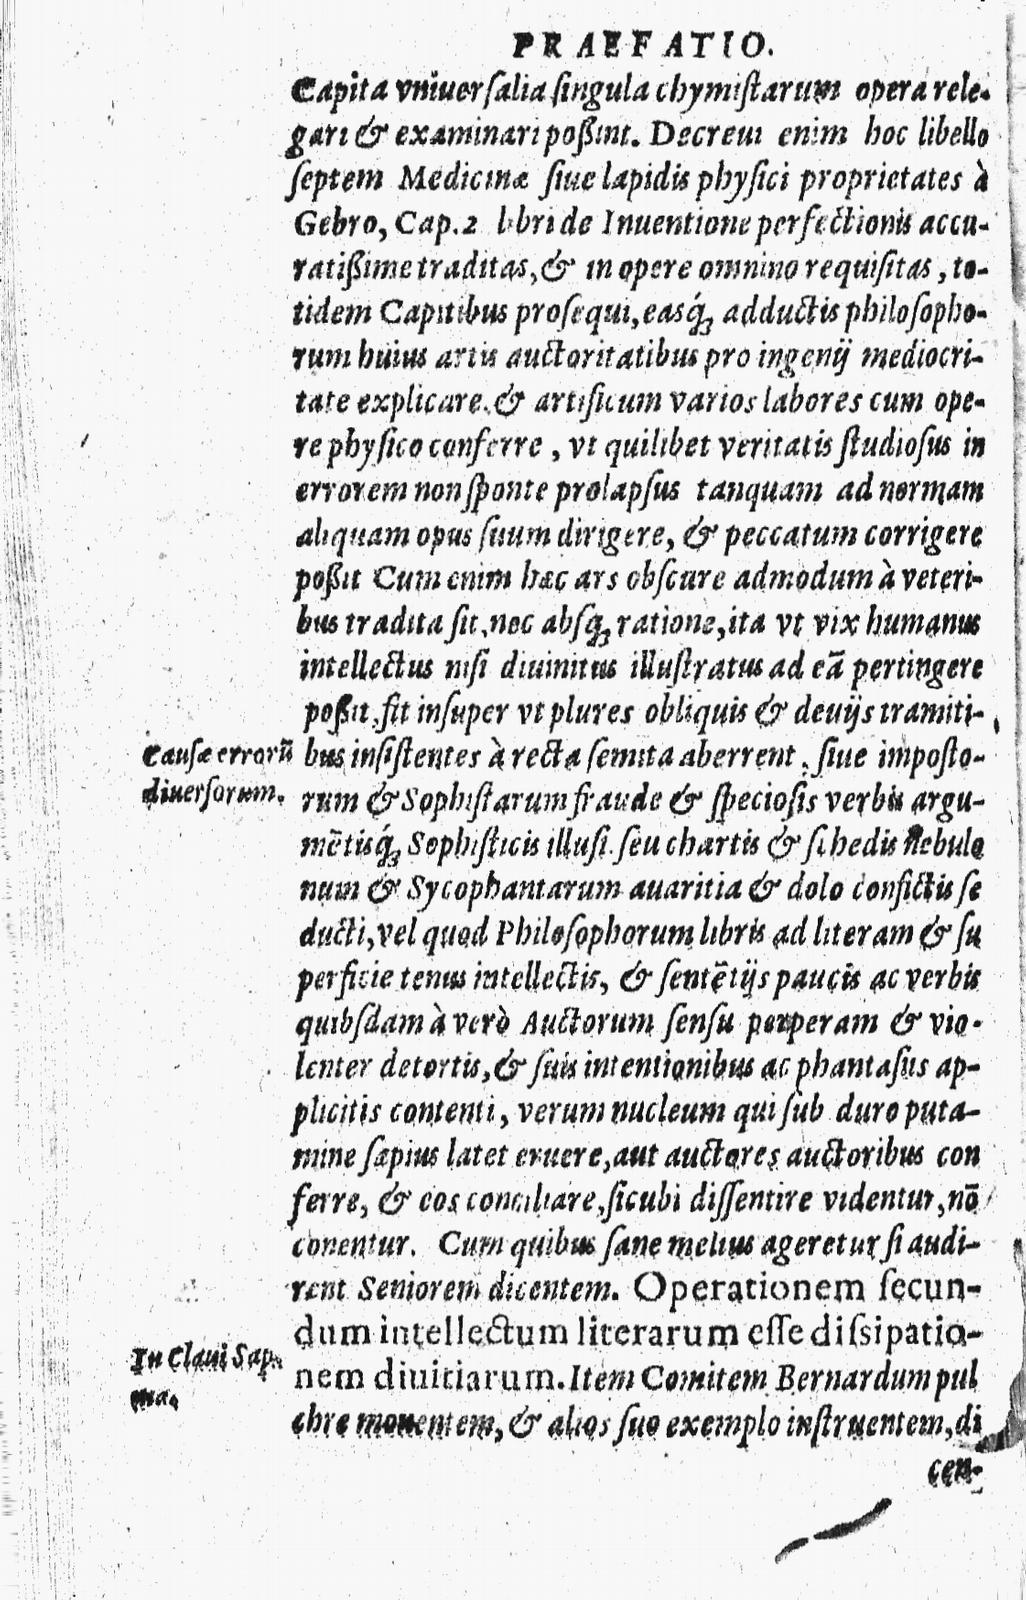 PRAEFATIO.
Capita vniuerſalia ſingula chymiſtarum opera rele-
gari & examinari poßint. Decreui enim hoc libello
ſeptem Medicinæ ſiue lapidis phyſici proprietates à
Gebro, Cap. 2 libri de Inuentione perfectionis accu-
ratißime traditas, & in opere omnino requiſitas, to-
tidem Capitibus proſequi, easq́; adductis philoſopho-
rum huius artis auctoritatibus pro ingenij mediocri-
tate explicare. & artificum varios labores cum ope-
re phyſico conferre, vt quilibet veritatis ſtudioſus in
errorem non ſponte prolapſus tanquam ad normam
aliquam opus ſuum dirigere, & peccatum corrigere
poßit Cum enim hæc ars obſcure admodum à veteri-
bus tradita ſit, nec abſq; ratione, ita vt vix humanus
intellectus niſi diuinitus illuſtratus ad eā pertingere
poßit, fit inſuper vt plures obliquis & deuijs tramiti-
Cauſæ errorū
diuerſorum.
bus inſiſtentes à recta ſemita aberrent, ſiue impoſto-
rum & Sophiſtarum fraude & ſpecioſis verbis argu-
mētisq́; Sophiſticis illuſi. ſeu chartis & ſchedis Nebulo
num & Sycophantarum auaritia & dolo confictis ſe
ducti, vel quod Philoſophorum libris ad literam & ſu
perficie tenus intellectis, & ſentētijs paucis ac verbis
quibſdam à verò Auctorum ſenſu perperam & vio-
lenter detortis, & ſuis intentionibus ac phantaſiis ap-
plicitis contenti, verum nucleum qui ſub duro puta-
mine ſæpius latet eruere, aut auctores auctoribus con
ferre, & eos conciliare, ſicubi diſſentire videntur, nō
conentur. Cum quibus ſane melius ageretur ſi audi-
rent Seniorem dicentem. Operationem ſecun-
dum intellectum literarum eſſe diſsipatio-
In Claui Sap.
ma.
nem diuitiarum. Item Comitem Bernardum pul
chre monentem, & alios ſuo exemplo inſtruentem, di
cen-